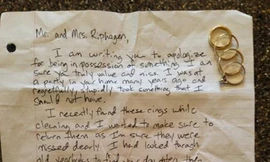 Mr. and Mrs. Rishagen,
I am writing you to apologize
for being in possession of something I am
sure you truly value and miss. I was at
a party in your home many years ago and
regretfully, stupidly took something that I
should not have.
I recently found these rings while
cleaning and I wanted to make sure to
return them as I'm sure they were
missed dearly. I had looked through
old yearbooks to find